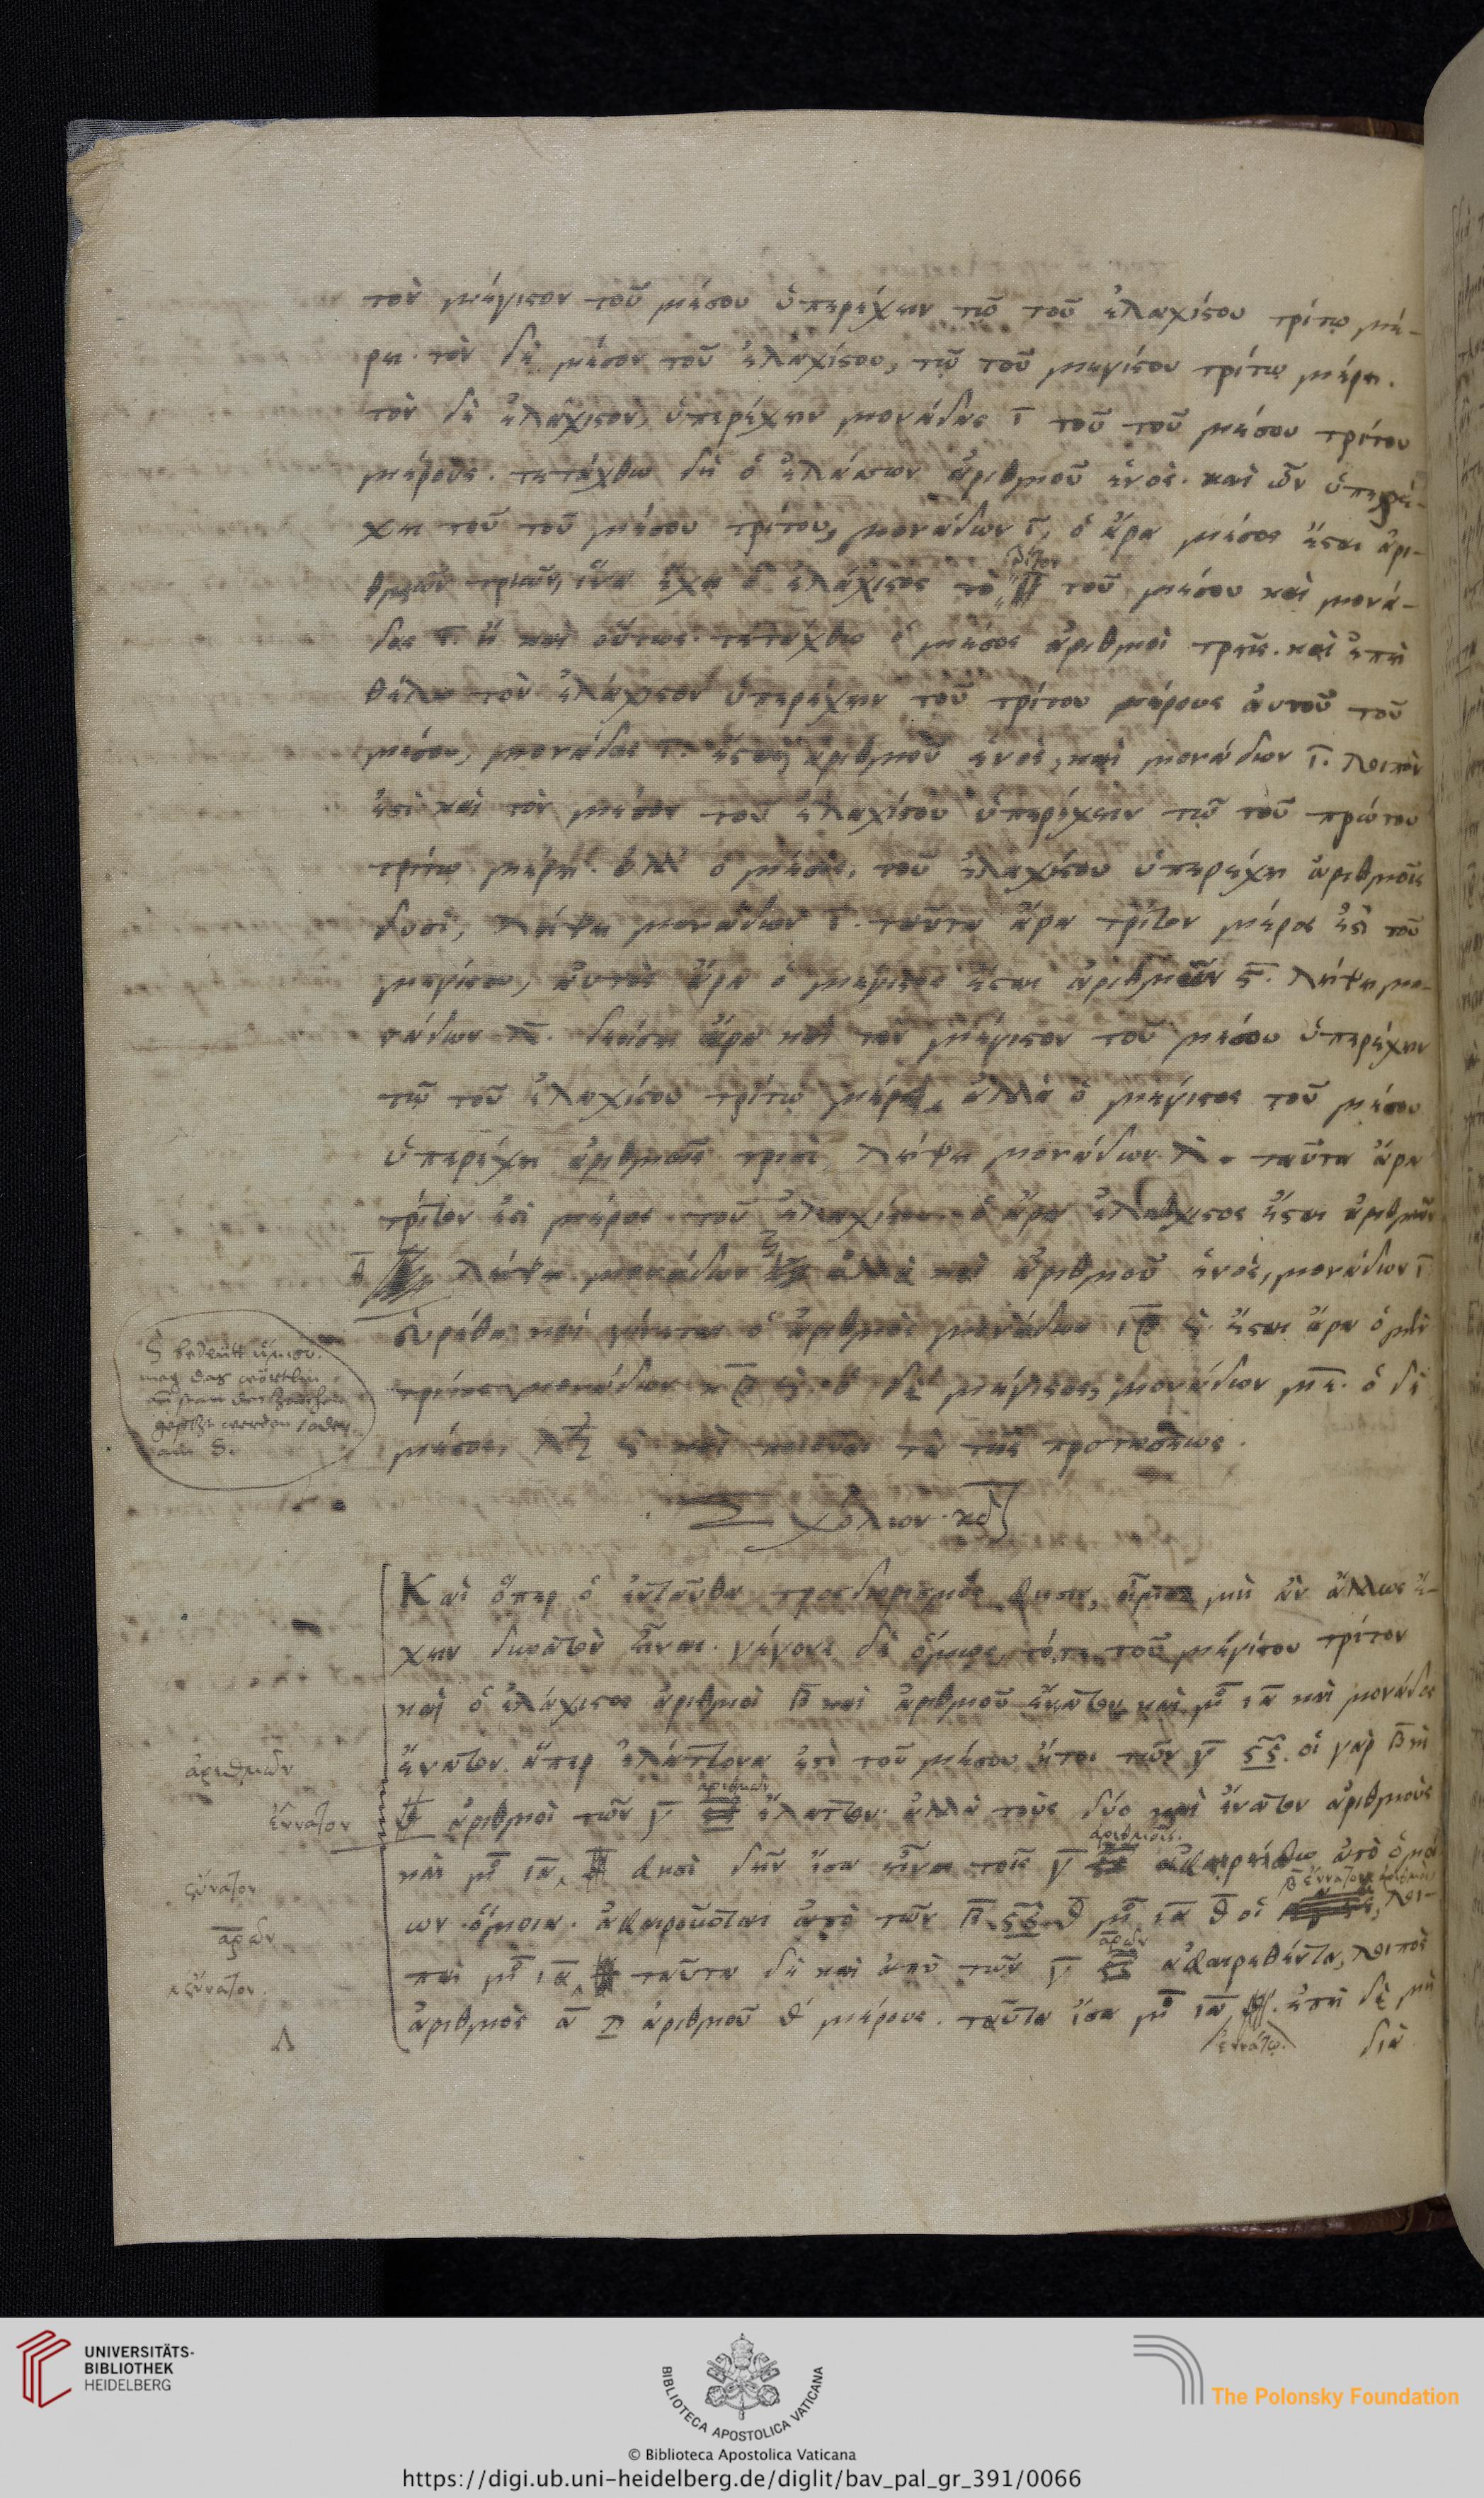 τὸν μέγιστον τοῦ μέσου ὑπερέχειν τῷ τοῦ ἐλαχίστου τρίτῳ μέ-
ρει. τὸν δὲ μέσον τοῦ ἐλαχίστου, τῷ τοῦ μεγίστου τρίτῳ μέρει.
τὸν δὲ ἐλάχιστον, ὑπερέχειν μονάδας ι̅ τοῦ τοῦ μέσου τρίτου
μέρους. τετάχθω δὴ ὁ ἐλάσσων ἀριθμοῦ ἑνὸς. καὶ ὧν ὑπερέ-
χει τοῦ τοῦ μέσου τρίτου, μονάδων ι̅, ὁ ἄρα μέσος ἔσται ἀρι-
τρίτον
θμῶν τριῶν, ἵνα ἔχῃ ὁ ἐλάχιστος τὸ τοῦ μέσου καὶ μονά-
δας ι̅. ἢ καὶ οὕτως. τετάχθω ὁ μέσος ἀριθμοὶ τρεῖς. καὶ ἐπεὶ
θέλω τὸν ἐλάχιστον ὑπερέχειν τοῦ τρίτου μέρους αὐτοῦ τοῦ
μέσου, μονάδας ι̅. ἔσται ἀριθμοῦ ἑνὸς, καὶ μονάδων ι̅. λοιπὸν
ἐστὶ καὶ τὸν μέσον τοῦ ἐλαχίστου ὑπερέχειν τῷ τοῦ πρώτου
τρίτῳ μέρει. ἀλλ' ὁ μέσος, τοῦ ἐλαχίστου ὑπερέχει ἀριθμοῖς
δυσὶ, λείψει μονάδων ι̅. ταῦτα ἄρα τρίτον μέρος ἐστὶ τοῦ
μεγίστου, αὐτὸς ἄρα ὁ μέγιστος ἔσται ἀριθμῶν ϛ̅. λείψει μο-
νάδων λ̅. δεήσει ἄρα καὶ τὸν μέγιστον τοῦ μέσου ὑπερέχειν
τῷ τοῦ ἐλαχίστου τρίτῳ μέρει, ἀλλὰ ὁ μέγιστος τοῦ μέσου
ὑπερέχει ἀριθμοῖς τρισὶ, λείψει μονάδων λ̅. ταῦτα ἄρα
τρίτον ἐστὶ μέρος τοῦ ἐλαχίστου. ὁ ἄρα ἐλάχιστος ἔσται ἀριθμῶν
θ̅ λείψει μονάδων ἀλλὰ καὶ ἀριθμοῦ ἑνὸς, μονάδων ι̅
εὑρέθη καὶ γίνεται ὁ ἀριθμὸς μονάδων ιβ̅ ϛ. ἔσται ἄρα ὁ μὲν
τρίτος μονάδων κβ̅ ϛ. ὁ δὲ μέγιστος, μονάδων με̅. ὁ δὲ
μέσος, λζ̅ ϛ καὶ ποιοῦσι τὰ τῆς προτάσεως.
ϛ bedeütt ἥμισυ.
Σχόλιον κδ
Καὶ ὅπερ ὁ ἐνταῦθα προσδιορισμὸς φησιν, μὴ ἂν ἄλλως ἔ-
χειν δυνατὸν εἶναι. γέγονε δὲ ὅμως τό,τε τοῦ μεγίστου τρίτον
καὶ ὁ ἐλάχιστος ἀριθμοὶ β̅ καὶ ἀριθμοῦ ἔνατον, καὶ μο ια̅ καὶ μονάδος
ἔνατον. ἅπερ ἐλάττονα ἐστὶ τοῦ μέσου ἤτοι τῶν γ̅ ϛϛ. οἱ γὰρ β̅ καὶ
ἀριθμῶν
ἀριθμῶν
ἔννατον
ἀριθμοὶ τῶν γ̅ ἔλαττον. ἀλλὰ τοὺς δύο καὶ ἔνατον ἀριθμοὺς
ἀριθμοῖς.
καὶ μο ια̅, φησὶ δεῖν ἴσα εἶναι τοῖς γ̅ ἀφαιρείσθω ἀπὸ ὁμοί-
β̅ ἔννατον ἀριθμὸν
ἔννατον
ων ὅμοια. ἀφαιροῦσται ἀπὸ τῶν β̅ ϛϛ θ̅ μο ια̅ θ̅ οἱ λοι-
ἀρ̅ῶν
ἀρ̅ῶν
ποὶ μο ια̅, ταῦτα δὲ καὶ ἀπὸ τῶν γ̅ ἀφαιρεθέντα, λοιπὸς
ἔννατον.
ἀριθμὸς α̅ ἀριθμοῦ θ' μέρους. ταῦτα ἴσα μο ια̅ ἐπεὶ δὲ μὴ
ἐννάτῳ.
διὰ
UNIVERSITÄTS-
BIBLIOTHEK
HEIDELBERG
BIBLIOTECA APOSTOLICA VATICANA
The Polonsky Foundation
© Biblioteca Apostolica Vaticana
https://digi.ub.uni-heidelberg.de/diglit/bav_pal_gr_391/0066